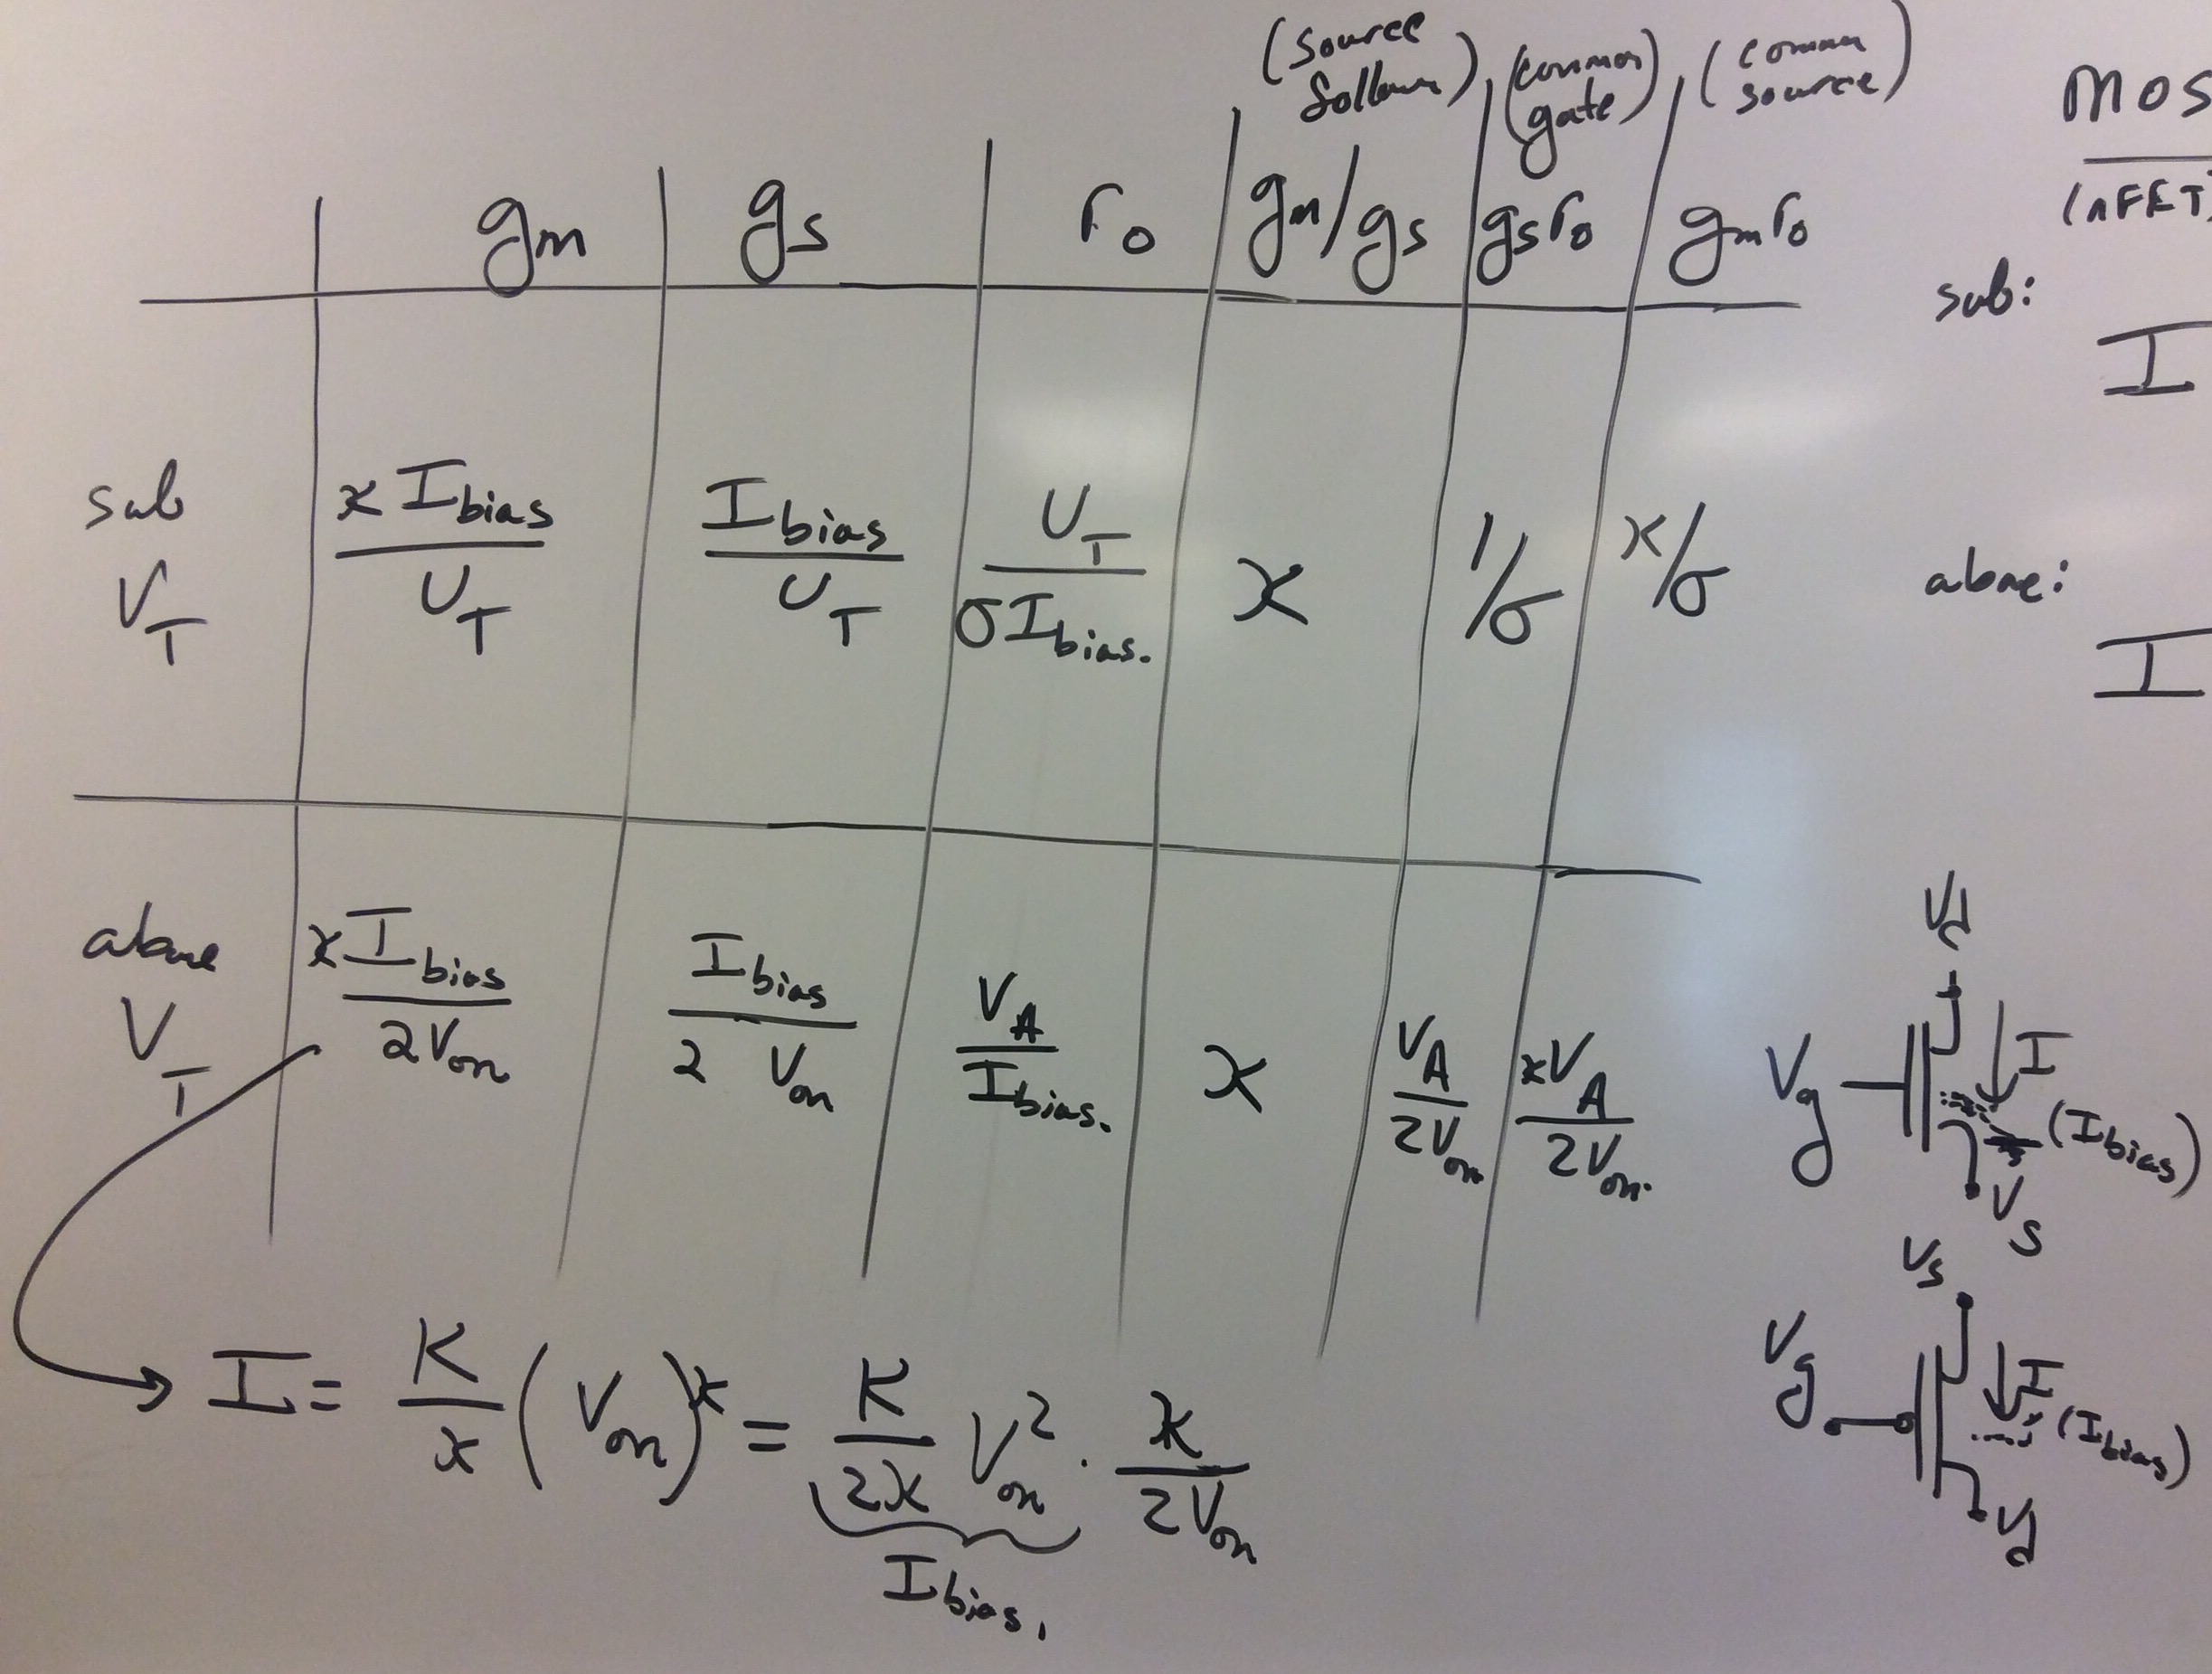 (source follower) (common gate) (common source)
gm gs ro gm/gs gsro gmro
sub VT ϰ Ibias / UT Ibias / UT UT / σ Ibias. ϰ 1/σ ϰ/σ
above VT ϰ Ibias / 2Von Ibias / 2 Von VA / Ibias. ϰ VA / 2Von ϰVA / 2Von.
I = K/ϰ (Von)ϰ = K/2ϰ Von² · ϰ/2Von
Ibias.
MOS
(nFET)
sub:
I
above:
I
Vd
Vg
I
(Ibias)
Vs
Vs
Vg
I
(Ibias)
Vd